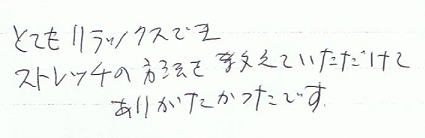 とてもリラックスでき
ストレッチの方法を教えていただけて
ありがたかったです。